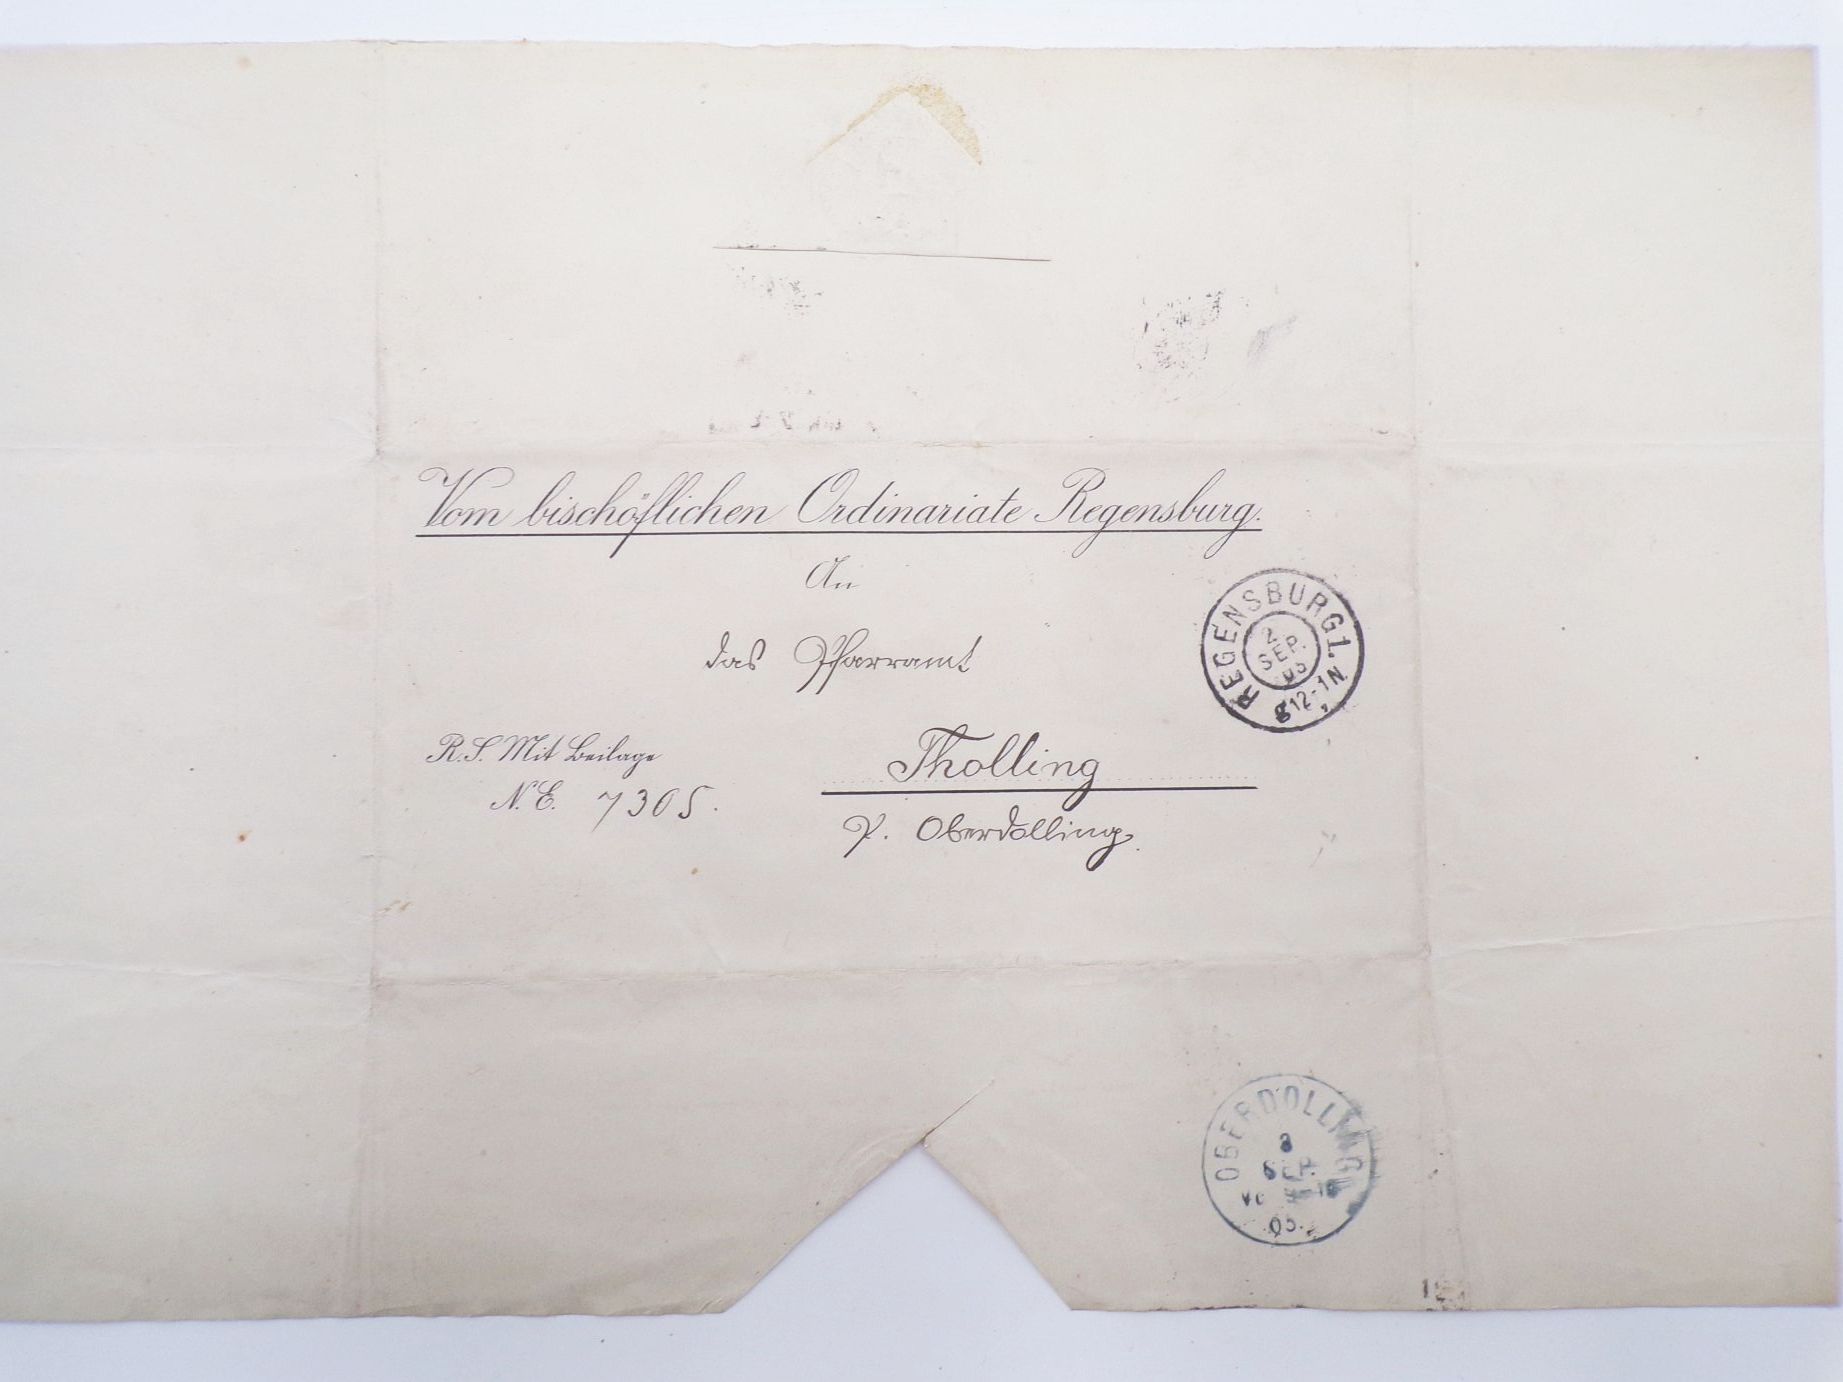 Vom bischöflichen Ordinariate Regensburg.
An
das Pfarramt
R.S. Mit Beilage
N.E. 7305.
Tholling
P. Oberdolling.
REGENSBURG 1.
2
SEP.
05
12-1N.
OBERDOLLING
3
SEP.
05.